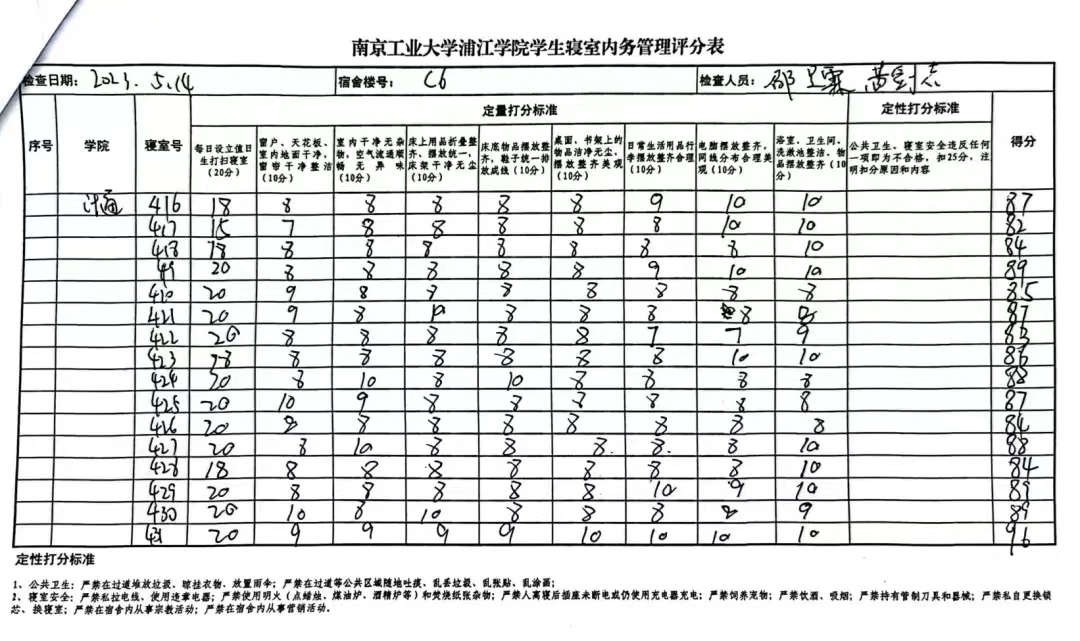 南京工业大学浦江学院学生寝室内务管理评分表
检查日期： 2023. 5.14 宿舍楼号： C6 检查人员：
序号 学院 寝室号 定量打分标准 定性打分标准 得分
每日设立值日生打扫寝室（20分） 窗户、天花板、室内地面干净，窗帘干净整洁（10分） 室内干净无杂物，空气流通顺畅无异味（10分） 床上用品折叠整齐、摆放统一，床架干净无尘（10分） 床底物品摆放整齐，鞋子统一排放成线（10分） 桌面、书架上的物品洁净无尘、摆放整齐美观（10分） 日常生活用品行李摆放整齐合理（10分） 电脑摆放整齐，网线分布合理美观（10分） 浴室、卫生间、洗漱池整洁、物品摆放整齐（10分） 公共卫生、寝室安全违反任何一项即为不合格，扣25分，注明扣分原因和内容
计通 416 18 8 8 8 8 8 9 10 10 87
417 15 7 8 8 8 8 8 10 10 82
418 18 8 8 8 8 8 8 8 10 84
49 20 8 8 8 8 8 9 10 10 89
410 20 9 8 8 8 8 8 8 8 85
421 20 9 8 10 8 8 8 8 8 87
422 20 8 8 8 8 8 7 7 9 83
423 18 8 8 8 8 8 8 10 10 86
424 20 8 10 8 10 8 8 8 8 88
425 20 10 9 8 8 8 8 8 8 87
426 20 8 8 8 8 8 8 8 8 84
427 20 8 10 8 8 8. 8. 8 10 88
428 18 8 8 8 8 8 8 8 10 84
429 20 8 8 8 8 8 10 9 10 89
430 20 10 8 10 8 8 8 8 9 89
431 20 9 9 9 9 10 10 10 10 96
定性打分标准
1、公共卫生：严禁在过道堆放垃圾、晾挂衣物、放置雨伞；严禁在过道等公共区域随地吐痰、乱丢垃圾、乱张贴、乱涂画；
2、寝室安全：严禁私拉电线、使用违章电器；严禁使用明火（点蜡烛、煤油炉、酒精炉等）和焚烧纸张杂物；严禁人离寝后插座未断电或仍使用充电器充电；严禁饲养宠物；严禁饮酒、吸烟；严禁持有管制刀具和器械；严禁私自更换锁
芯、换寝室；严禁在宿舍内从事宗教活动；严禁在宿舍内从事营销活动。